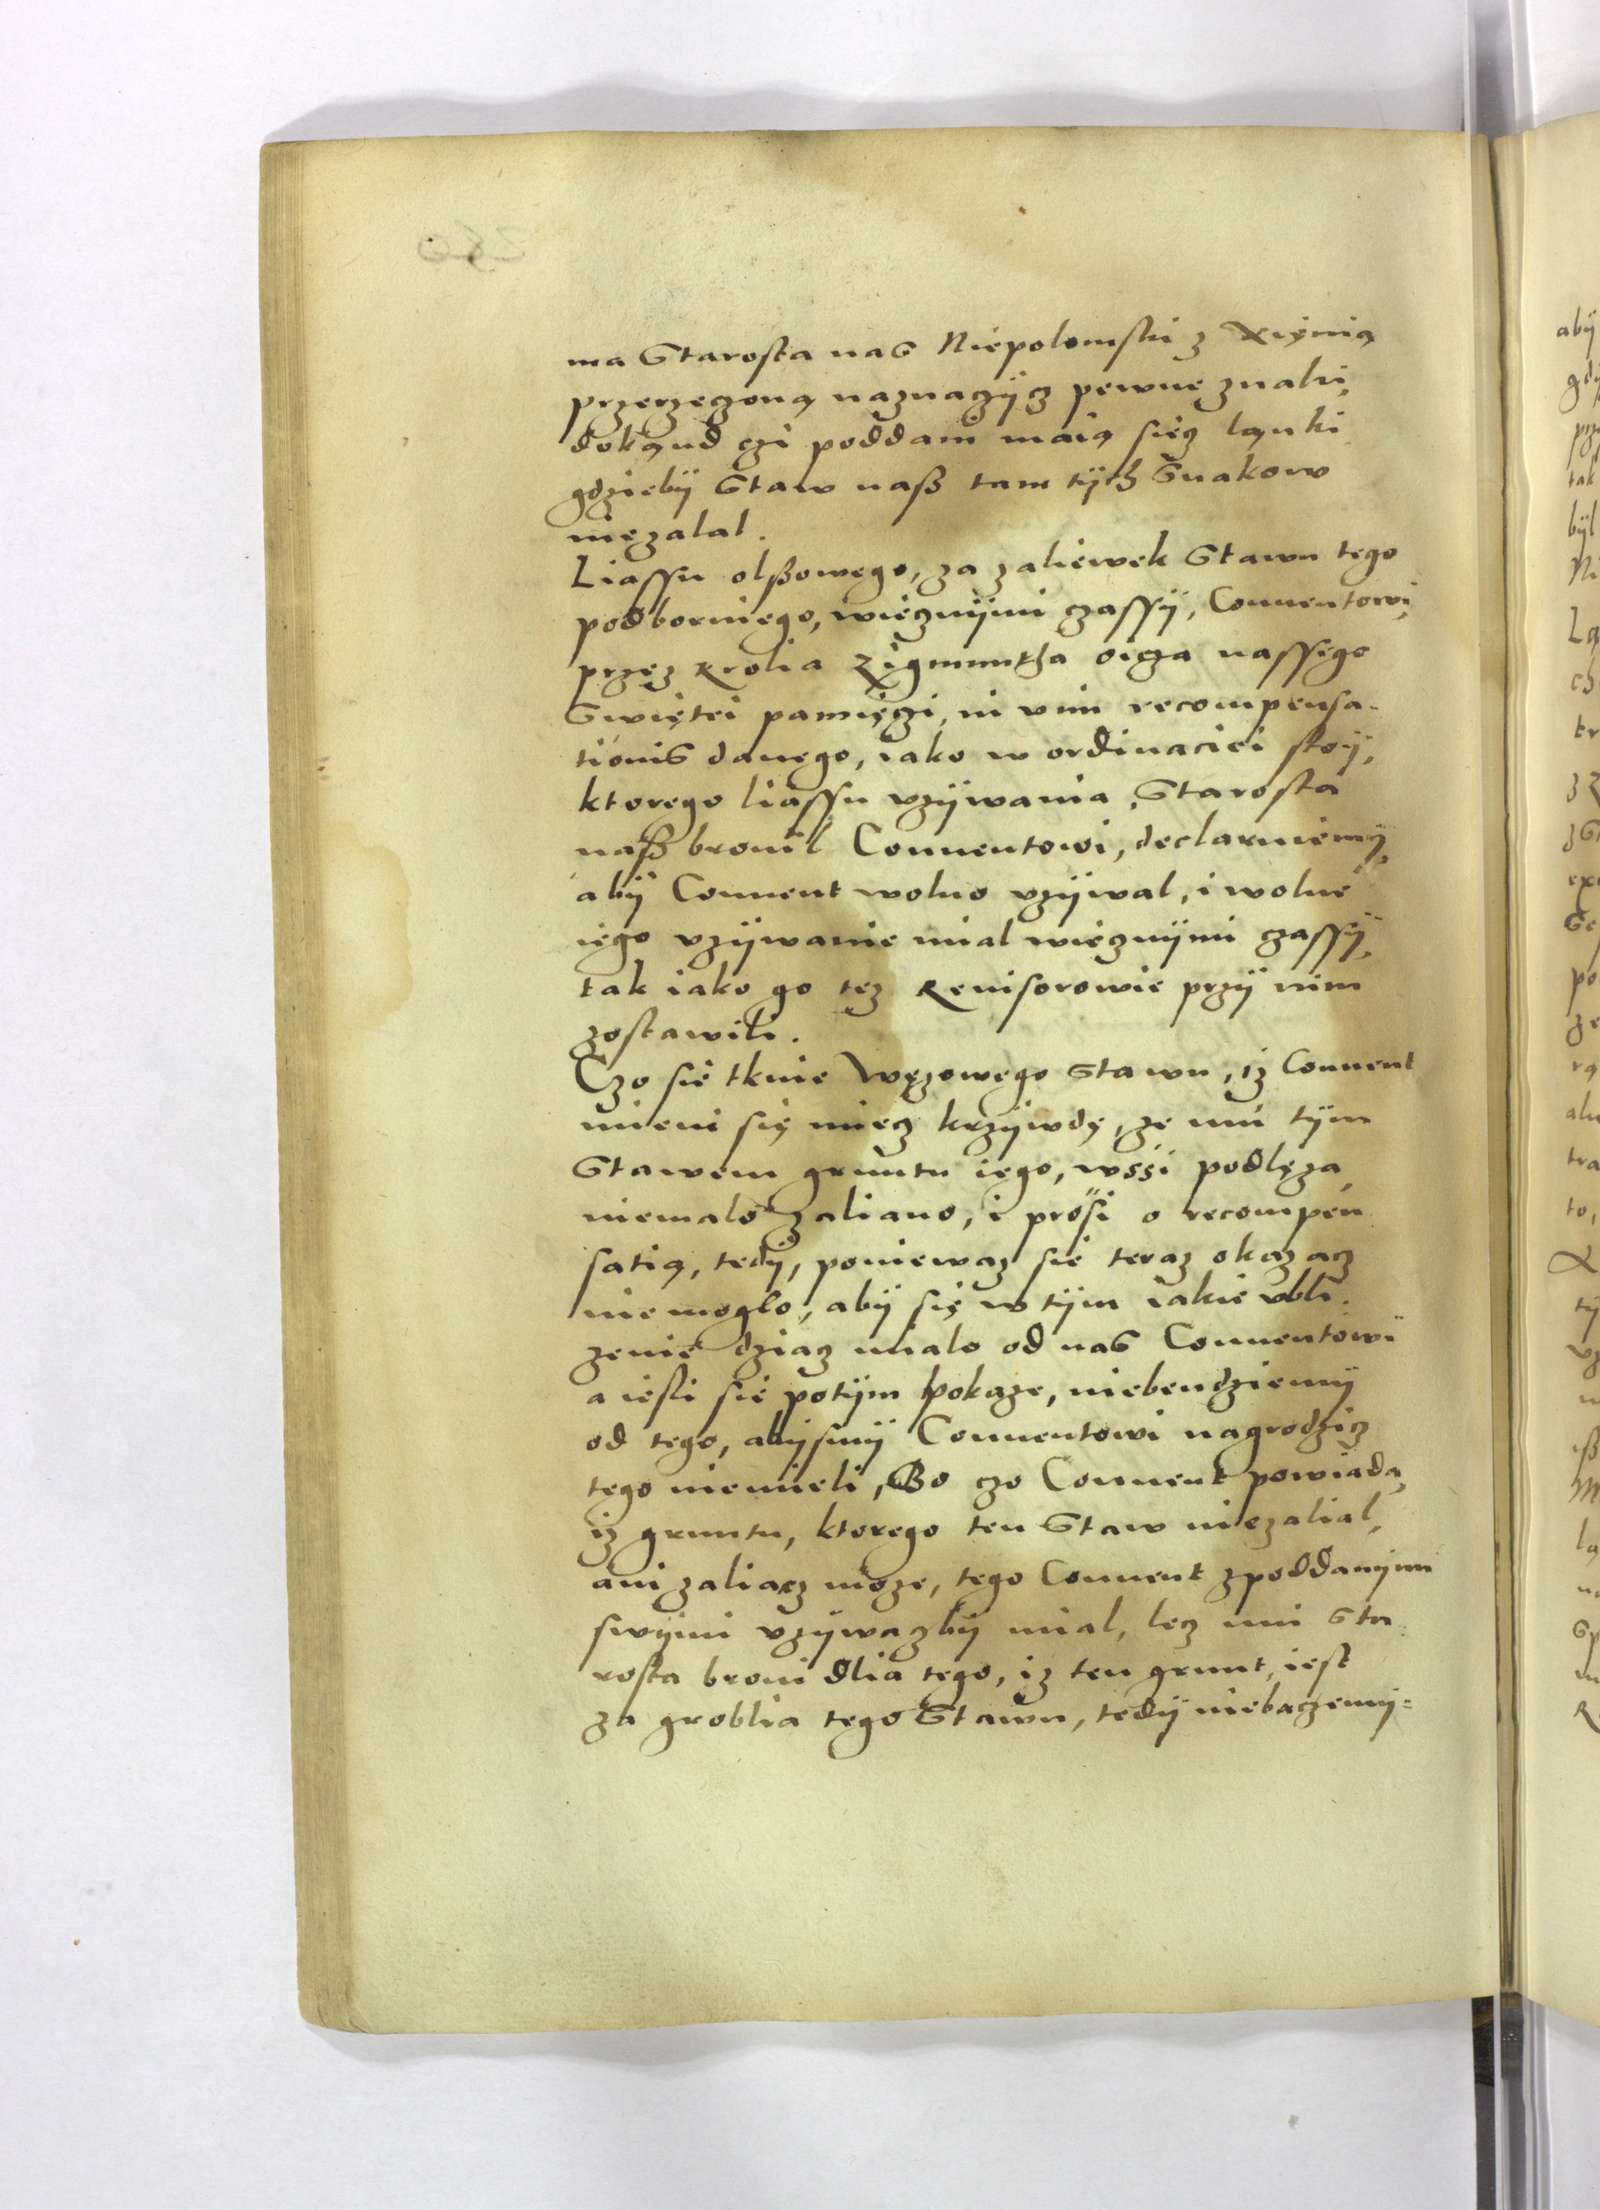 ma Starosta nas Niepolomski z Xięnią
przerzeczoną naznaczÿcz pewne znaki,
dokąnd czi poddani maią siecz ląnki
gdziebÿ Staw nasz tam tÿch Snakow
niezalal.
Liassu olszowego, za zaliewek Stawu tego
podborniego, wiecznÿmi czassÿ, Conuentowi,
przez Krolia Zigmuntha oicza nassego
Swiętei pamięczi, in vim recompensa-
tionis danego, iako w ordinaciei stoÿ,
ktorego liassu vzÿwania, Starosta
nasz bronil Conuentowi, declaruiemÿ,
abÿ Conuent wolno vzÿwal, i wolne
iego vzÿwanie mial wiecznÿmi czassÿ,
tak iako go tez Reuisorowie przÿ nim
zostawili.
Czo sie tknie Węzowego Stawu, iz Conuent
mieni się miecz krzÿwdę, ze mu tÿm
Stawem gruntu iego, wssi podlęza,
niemalo zaliano, i prosi o recompen
satią, tedÿ, poniewaz sie teraz okazacz
niemoglo, abÿ się w tÿm iakie vbli-
zenie dziacz mialo od nas Conuentowi
a iesli sie potÿm pokaze, niebendziemÿ
od tego, abÿsmÿ Conuentowi nagrodzicz
tego niemieli, Bo czo Conuent powiada,
iz gruntu, ktorego ten Staw niezalial,
ani zaliacz moze, tego Conuent zpoddanÿmi
swÿmi vzÿwaczbÿ mial, lecz mu Sta-
rosta broni dlia tego, iz ten grunt, iest
za groblia tego Stawu, tedÿ niebaczemÿ=